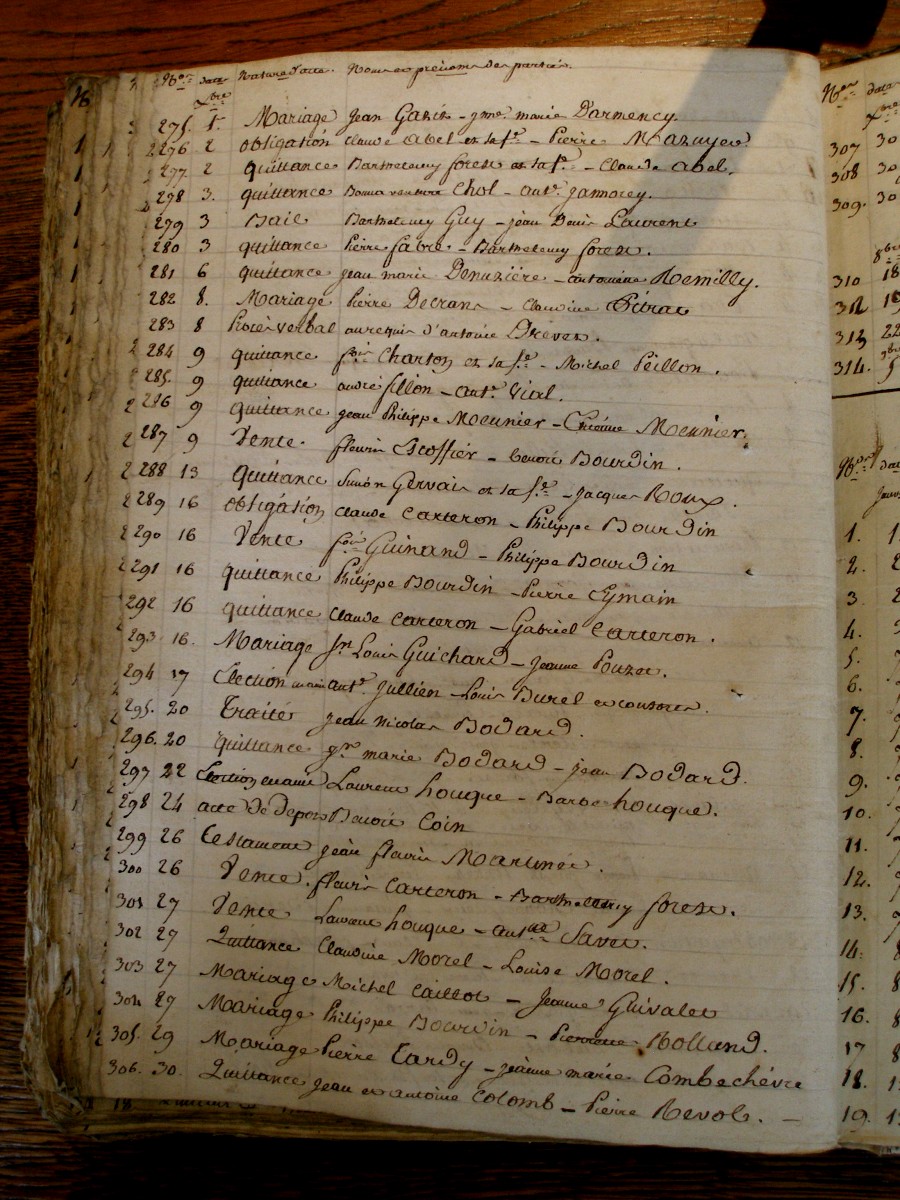 Nos date Nature d'acte. Noms et prénoms des parties.
Xbre
275. 1. Mariage Jean Gazin - jne marie Darmency.
276 2 obligation claude abel et sa fe - Pierre Mazuyer
277. 2 quittance Barthelemy forest et sa fe - Claude abel.
278 3. quittance Bonnaventure Chol - ant. jamorey.
279 3 Bail Barthelemy Guy - jean Denis Laurent
280 3 quittance Pierre fabre - Barthelemy forest.
281 6 quittance jean marie Denuzière - antoinine Remilly.
282 8. Mariage Pierre Decrans - Claudine Pitrat
283 8 Procès verbal au requis d'antoine Drevet.
284 9 quittance fois Charton et sa fe - Michel Peillon.
285. 9 quittance andré fillon - ant. Vial.
286 9 quittance jean Philippe Meunier - Etienne Meunier.
287 9 Vente. fleurie Escoffier - benoit Bourdin.
288 13 Quittance Simon Gervais et sa fe - Jacques Roux.
289 16 obligation Claude Carteron - Philippe Bourdin
290 16 Vente fois Guinand - Philippe Bourdin
291 16 quittance Philippe Bourdin - Pierre Eymain
292 16 quittance Claude Carteron - Gabriel Carteron.
293 16. Mariage Sr Louis Guichard - Jeanne Pouzet.
294 17 Election en ami ant. Jullien - Louis Burel et consorts.
295. 20 Traité jean Nicolas Bodard.
296. 20 quittance marie Bodard - jean Bodard.
297 22 Election en ami Laurent houque - Barbe houque.
298 24 acte de depot Benoit Coin
299 26 testament jean fleurie Martinet.
300 26 Vente. fleurie Carteron - Barthelemy forest.
301 27 Vente Laurent houque - Savet.
302 27 Quittance Claudine Morel - Louise Morel.
303 27 Mariage Michel Caillot - Jeanne Guivalet
304 27 Mariage Philippe Bourdin - Pierrette Rolland.
305. 29 Mariage Pierre Tardy - jeanne marie Combechèvre
306. 30. Quittance jean et antoine Colomb - Pierre Revol. -
Nos date
307 30
308 30
309. 30
310 18
311
312 22
314.
Nos
1.
2.
3
4.
5.
6.
7.
8.
9.
10.
11.
12.
13.
14.
15.
16.
17
18.
19.